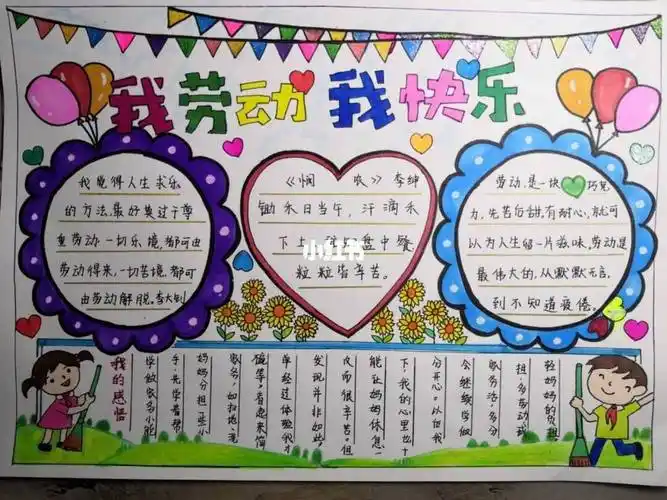 我劳动 我快乐
我觉得人生求乐
的方法,最好莫过于尊
重劳动一切乐境,都可由
劳动得来,一切苦境,都可
由劳动解脱。李大钊
《悯 农》李绅
锄禾日当午,汗滴禾
下土 盘中餐
粒粒皆辛苦。
小红书
劳动,是一块 巧克
力,先苦后甜,有耐心,就可
以为人生 一片滋味,劳动是
最伟大的,从默默无言,
到不知道疲倦。
我的感悟
学做家务小能
手,先学着帮
妈妈分担一些小
家务,如扫地,洗
碗等。看起来简
单经过体验我才
发现并非如此,
反而很辛苦。但
能让妈妈休息一
下,我的心里也十
分开心。以后我
会继续学做
家务活,多分
担,多劳动,减
轻妈妈的负担